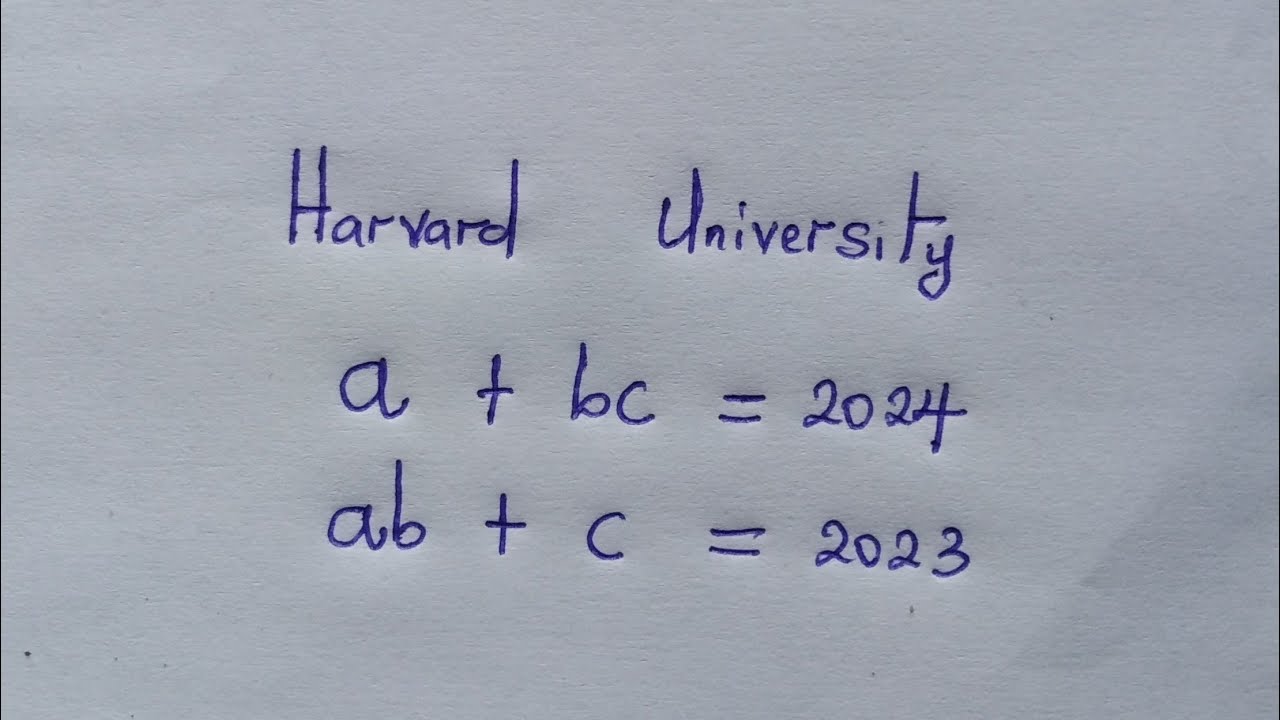 Harvard University
a + bc = 2024
ab + c = 2023